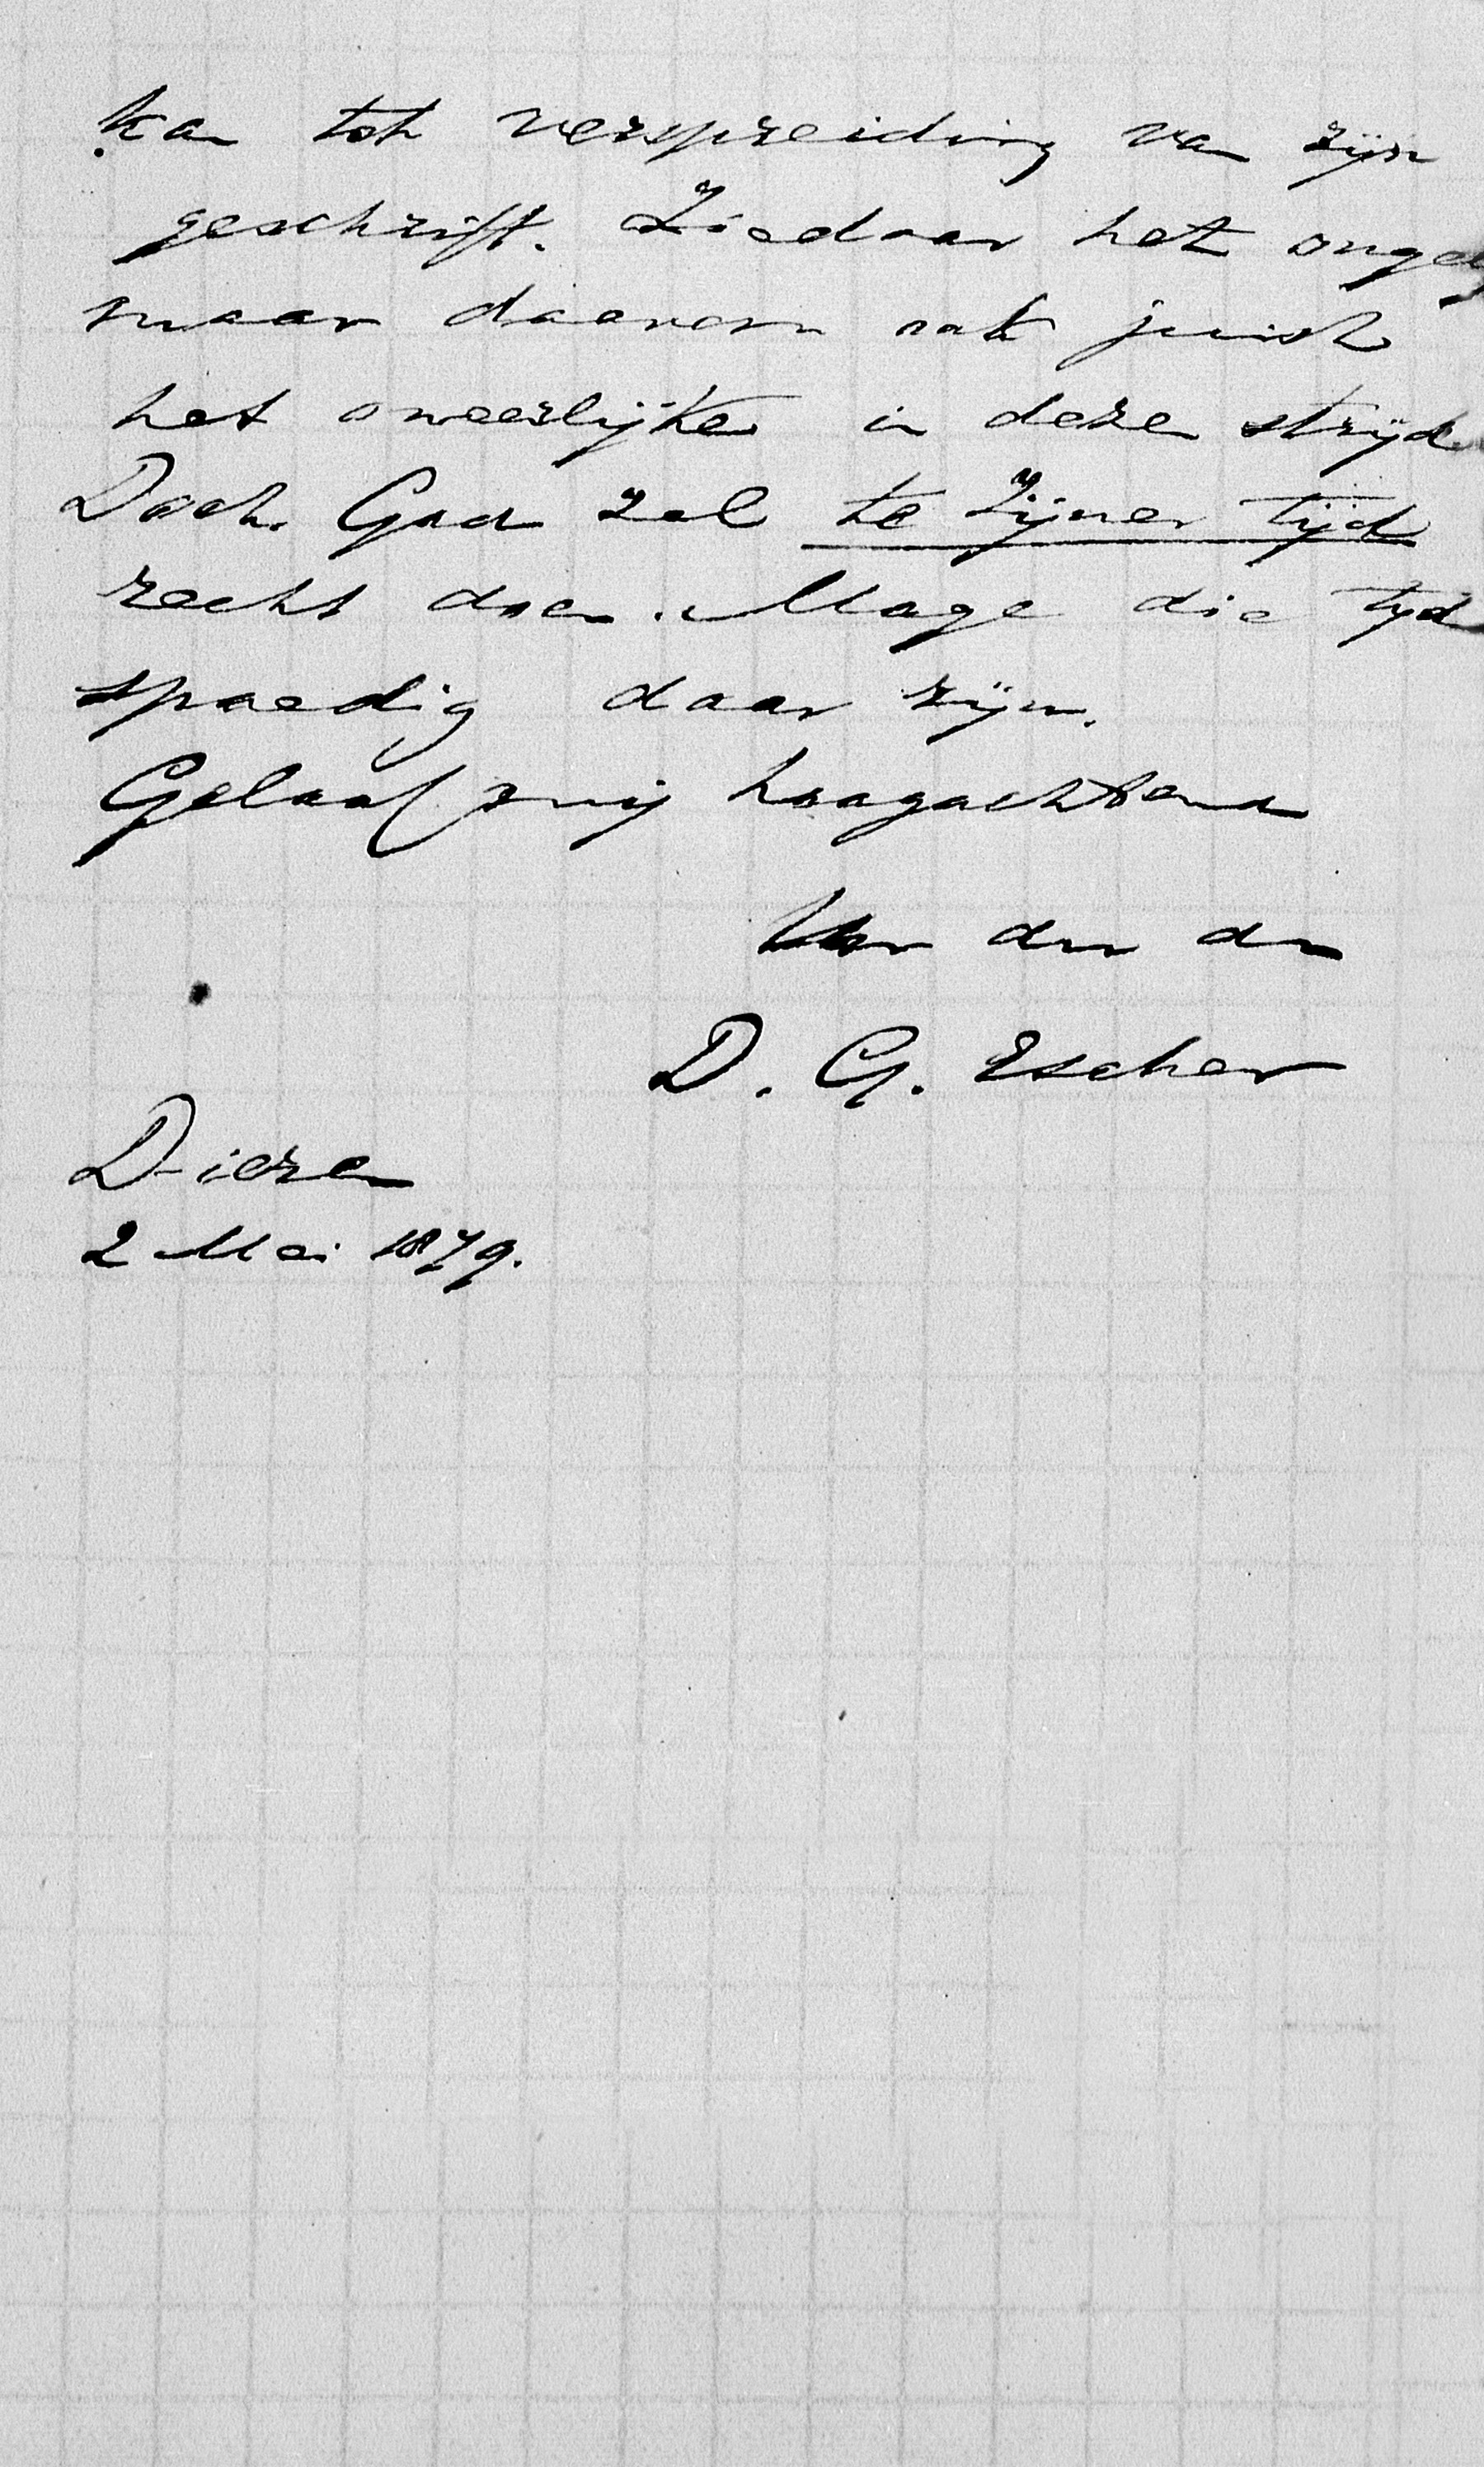 kan tot verspreiding van zijn
geschrift. Ziedaar het
maar daarom ook juist
het oneerlijke in dezen strijd
Doch God zal te Zijner tijd
recht doen. Moge die tijd
spoedig daar zijn.
Geloof mij hoogachtend
Uw dw dn
D. G. Escher
Dieren
2 Mei 1879.